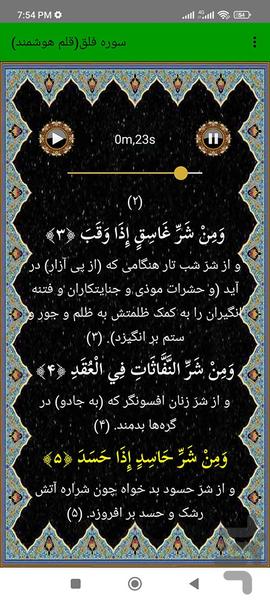 7:54 PM
سوره فلق(قلم هوشمند)
0m,23s
(۲)
وَمِنْ شَرِّ غَاسِقٍ إِذَا وَقَبَ ﴿۳﴾
و از شرّ شب تار هنگامی که (از پی آزار) در
آید (و حشرات موذی و جنایتکاران و فتنه
انگیران را به کمک ظلمتش به ظلم و جور و
ستم بر انگیزد). (۳)
وَمِنْ شَرِّ النَّفَّاثَاتِ فِي الْعُقَدِ ﴿۴﴾
و از شرّ زنان افسونگر که (به جادو) در
گره‌ها بدمند. (۴)
وَمِنْ شَرِّ حَاسِدٍ إِذَا حَسَدَ ﴿۵﴾
و از شر حسود بد خواه چون شراره آتش
رشک و حسد بر افروزد. (۵)